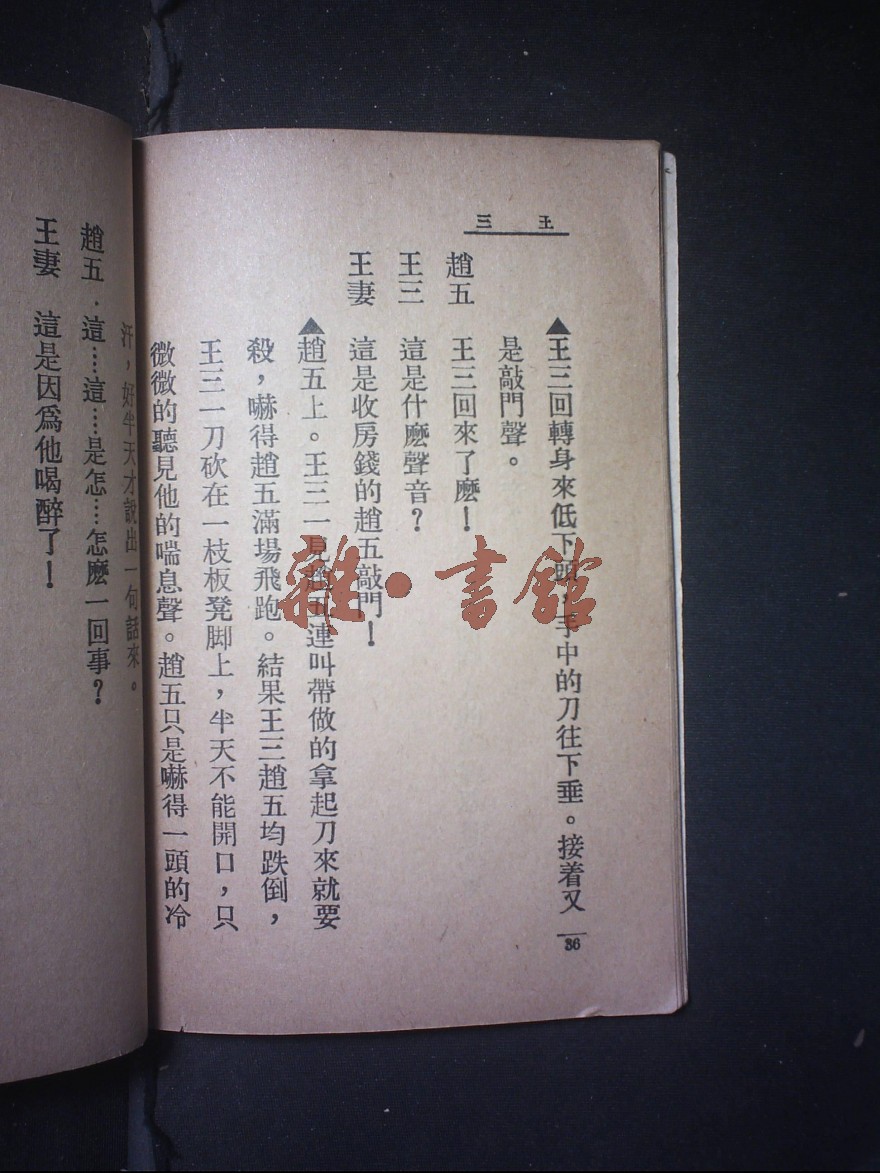 王三
▲王三回轉身來低下頭，手中的刀往下垂。接着又
是敲門聲。
趙五　王三回來了麽！
王三　這是什麽聲音？
王妻　這是收房錢的趙五敲門！
▲趙五上。王三一見趙五連叫帶做的拿起刀來就要
殺，嚇得趙五滿場飛跑。結果王三趙五均跌倒，
王三一刀砍在一枝板凳脚上，半天不能開口，只
微微的聽見他的喘息聲。趙五只是嚇得一頭的冷
36
汗，好半天才說出一句話來。
趙五　這……這……是怎……怎麽一回事？
王妻　這是因爲他喝醉了！
雜·書館